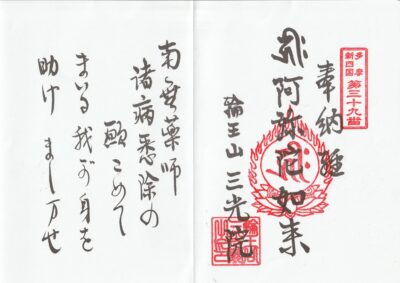 多摩
新四国
第三十九番
奉納経
阿弥陀如来
輪王山 三光院
南無薬師
諸病悉除の
願こめて
まいる我が身を
助けましませ